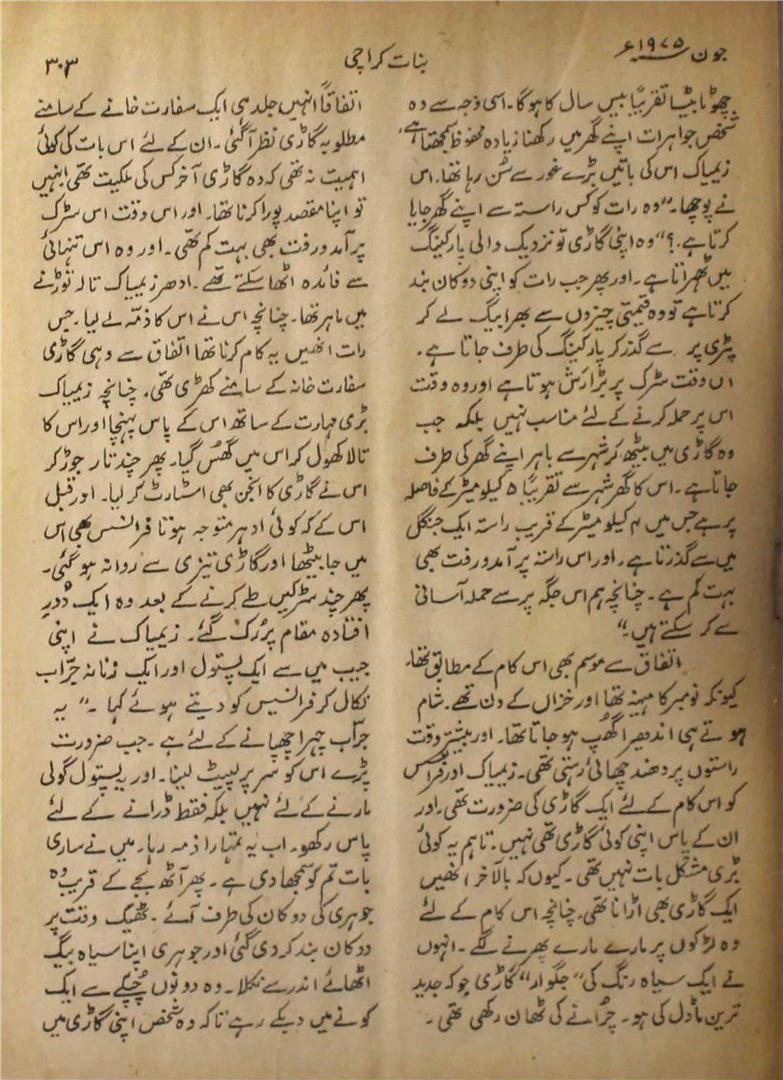 جون ۱۹۷۵ء
بنات کراچی
۳۰۳
چھوٹا بیٹا تقریباً بیس سال کا ہوگا۔ اسی وجہ سے وہ
شخص جواہرات اپنے گھر میں رکھنا زیادہ محفوظ سمجھتا ہے،
زیمیاک اس کی باتیں بڑے غور سے سُن رہا تھا۔ اس
نے پوچھا۔ "وہ رات کو کس راستہ سے اپنے گھر جایا
کرتا ہے۔؟" وہ اپنی گاڑی تو نزدیک والی پارکینگ
میں ٹھہراتا ہے۔ اور پھر جب رات کو اپنی دوکان بند
کرتا ہے تو وہ قیمتی چیزوں سے بھرا بیگ لے کر
پٹری پر سے گذر کر پارکینگ کی طرف جاتا ہے۔
اس وقت سڑک پر بڑا رَش ہوتا ہے اور وہ وقت
اس پر حملہ کرنے کے لئے مناسب نہیں بلکہ جب
وہ گاڑی میں بیٹھ کر شہر سے باہر اپنے گھر کی طرف
جاتا ہے۔ اس کا گھر شہر سے تقریباً ۵ کیلومیٹر کے فاصلہ
پر ہے جس میں ۲ کیلومیٹر کے قریب راستہ ایک جنگل
میں سے گذرتا ہے۔ اور اس راستہ پر آمد و رفت بھی
بہت کم ہے۔ چنانچہ ہم اس جگہ پر سے حملہ آسانی
سے کر سکتے ہیں۔"
اتفاق سے موسم بھی اس کام کے مطابق تھا۔
کیونکہ نومبر کا مہینہ تھا اور خزاں کے دن تھے۔ شام
ہوتے ہی اندھیرا گھُپ ہو جاتا تھا۔ اور بیشتر وقت
راستوں پر دھند چھائی رہتی تھی۔ زیمیاک اور فرانسس
کو اس کام کے لئے ایک گاڑی کی ضرورت تھی۔ اور
ان کے پاس اپنی کوئی گاڑی تھی نہیں۔ تاہم یہ کوئی
بڑی مشکل بات نہیں تھی۔ کیوں کہ بالآخر انھیں
ایک گاڑی بھی اڑانا تھی۔ چنانچہ اس کام کے لئے
وہ لڑکوں پر مارے مارے پھرنے لگے۔ انہوں
نے ایک سیاہ رنگ کی "جگوار" گاڑی جو کہ جدید
ترین ماڈل کی ہو۔ چرانے کی ٹھان رکھی تھی۔
اتفاقاً انہیں جلد ہی ایک سفارت خانے کے سامنے
مطلوبہ گاڑی نظر آگئی۔ ان کے لئے اس بات کی کوئی
اہمیت نہ تھی کہ وہ گاڑی آخر کس کی ملکیت تھی انہیں
تو اپنا مقصد پورا کرنا تھا۔ اور اس وقت اس سڑک
پر آمد و رفت بھی بہت کم تھی۔ اور وہ اس تنہائی
سے فائدہ اٹھا سکتے تھے۔ ادھر زیمیاک تالہ توڑنے
میں ماہر تھا۔ چنانچہ اس نے اس کا ذمہ لے لیا۔ جس
رات انھیں یہ کام کرنا تھا اتفاق سے وہی گاڑی
سفارت خانہ کے سامنے کھڑی تھی۔ چنانچہ زیمیاک
بڑی مہارت کے ساتھ اس کے پاس پہنچا اور اس کا
تالا کھول کر اس میں گھُس گیا۔ پھر چند تار جوڑ کر
اس نے گاڑی کا انجن بھی اسٹارٹ کر لیا۔ اور قبل
اس کے کہ کوئی ادھر متوجہ ہوتا فرانسس بھی اس
میں جا بیٹھا اور گاڑی تیزی سے روانہ ہوگئی۔
پھر چند سڑکیں طے کرنے کے بعد وہ ایک دُور
افتادہ مقام پر رُک گئے۔ زیمیاک نے اپنی
جیب میں سے ایک پستول اور ایک زنانہ جرّاب
نکال کر فرانسیس کو دیتے ہوئے کہا۔ "یہ
جرّاب چہرا چھپانے کے لئے ہے۔ جب ضرورت
پڑے اس کو سر پر لپیٹ لینا۔ اور یہ پستول گولی
مارنے کے لئے نہیں بلکہ فقط ڈرانے کے لئے
پاس رکھو۔ اب یہ تمہارا ذمہ رہا۔ میں نے ساری
بات تم کو سمجھا دی ہے۔ پھر آٹھ بجے کے قریب وہ
جوہری کی دوکان کی طرف آئے۔ ٹھیک وقت پر
دوکان بند کر دی گئی اور جوہری اپنا سیاہ بیگ
اٹھائے اندر سے نکلا۔ وہ دونوں چُپکے سے ایک
کونے میں دبکے رہے تاکہ وہ شخص اپنی گاڑی میں